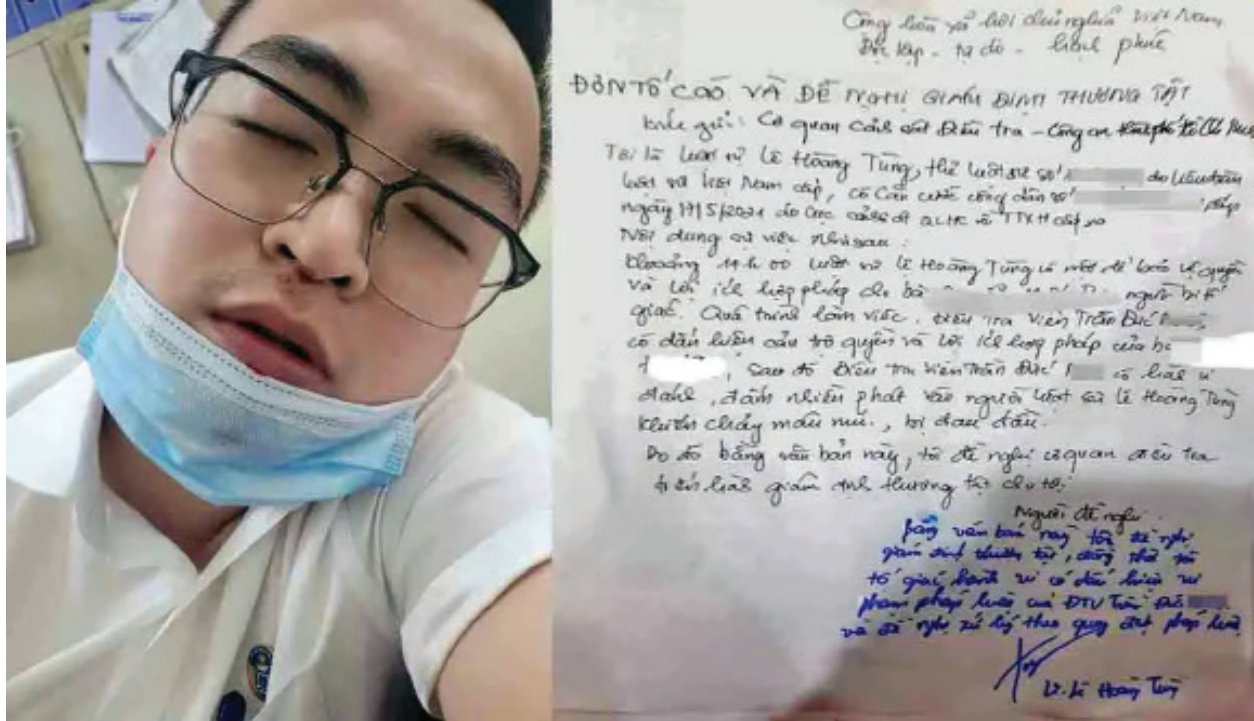 Cộng hòa xã hội chủ nghĩa Việt Nam
Độc lập - Tự do - hạnh phúc
ĐƠN TỐ CÁO VÀ ĐỀ NGHỊ GIÁM ĐỊNH THƯƠNG TẬT
Kính gửi: Cơ quan cảnh sát Điều tra - Công an thành phố Hồ Chí Minh
Tôi là luật sư Lê Hoàng Tùng, thẻ luật sư số do Liên đoàn
luật sư Việt Nam cấp, có Căn cước công dân số cấp
ngày 17/5/2021 do Cục cảnh sát QLHC về TTXH cấp
Nội dung sự việc như sau:
Khoảng 11h00 luật sư Lê Hoàng Tùng có mặt để bảo vệ quyền
và lợi ích hợp pháp cho bà người bị tố
giác. Quá trình làm việc, Điều tra viên Trần Đức
có dấu hiệu cản trở quyền và lợi ích hợp pháp của bà
Sau đó Điều tra viên Trần Đức có hành vi
đánh, đấm nhiều phát vào người luật sư Lê Hoàng Tùng
khiến chảy máu mũi, bị đau đầu.
Do đó bằng văn bản này, tôi đề nghị cơ quan điều tra
tiến hành giám định thương tật cho tôi.
Người đề nghị
Bằng văn bản này tôi đề nghị
giám định thương tật, đồng thời
tố giác hành vi có dấu hiệu vi
phạm pháp luật của ĐTV Trần Đức
và đề nghị xử lý theo quy định pháp luật
LS. Lê Hoàng Tùng